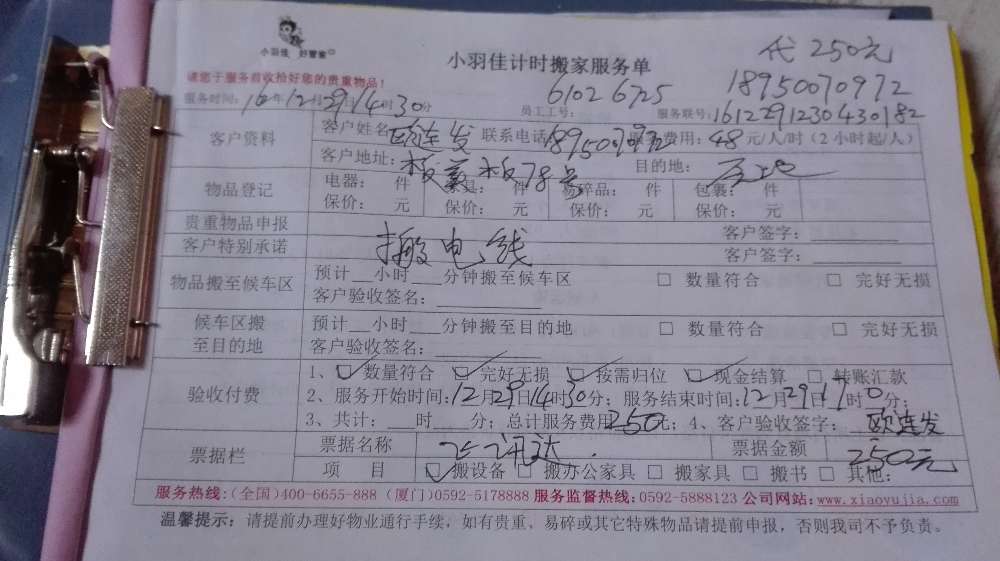 小羽佳 好管家
小羽佳计时搬家服务单
代 250元
请您于服务前收拾好您的贵重物品！
6102 6725
18950070972
服务时间：16年12月29日14时30分 员工工号： 服务联号：16122912304330182
客户资料
客户姓名 欧连发 联系电话 18950070972 费用：48元/人/时（2小时起/人）
客户地址： 78号 目的地：
物品登记
电器： 件 家具： 件 易碎品： 件 包裹： 件
保价： 元 保价： 元 保价： 元 保价： 元
贵重物品申报 客户签字：
客户特别承诺 搬电线 客户签字：
物品搬至候车区
预计__小时___分钟搬至候车区 □ 数量符合 □ 完好无损
客户验收签名：
候车区搬至目的地
预计__小时___分钟搬至目的地 □ 数量符合 □ 完好无损
客户验收签名：
验收付费
1、☑ 数量符合 ☑ 完好无损 ☑ 按需归位 ☑ 现金结算 □ 转账汇款
2、服务开始时间：12月29日14时30分；服务结束时间：12月29日17时0分；
3、共计：___时___分；总计服务费用250元；4、客户验收签字：欧连发
票据栏
票据名称 讯达 票据金额 250元
项 目 ☑ 搬设备 □ 搬办公家具 □ 搬家具 □ 搬书 □ 其他：
服务热线：(全国)400-6655-888 (厦门)0592-5178888 服务监督热线：0592-5888123 公司网站：www.xiaoyujia.com
温馨提示：请提前办理好物业通行手续，如有贵重、易碎或其它特殊物品请提前申报，否则我司不予负责。